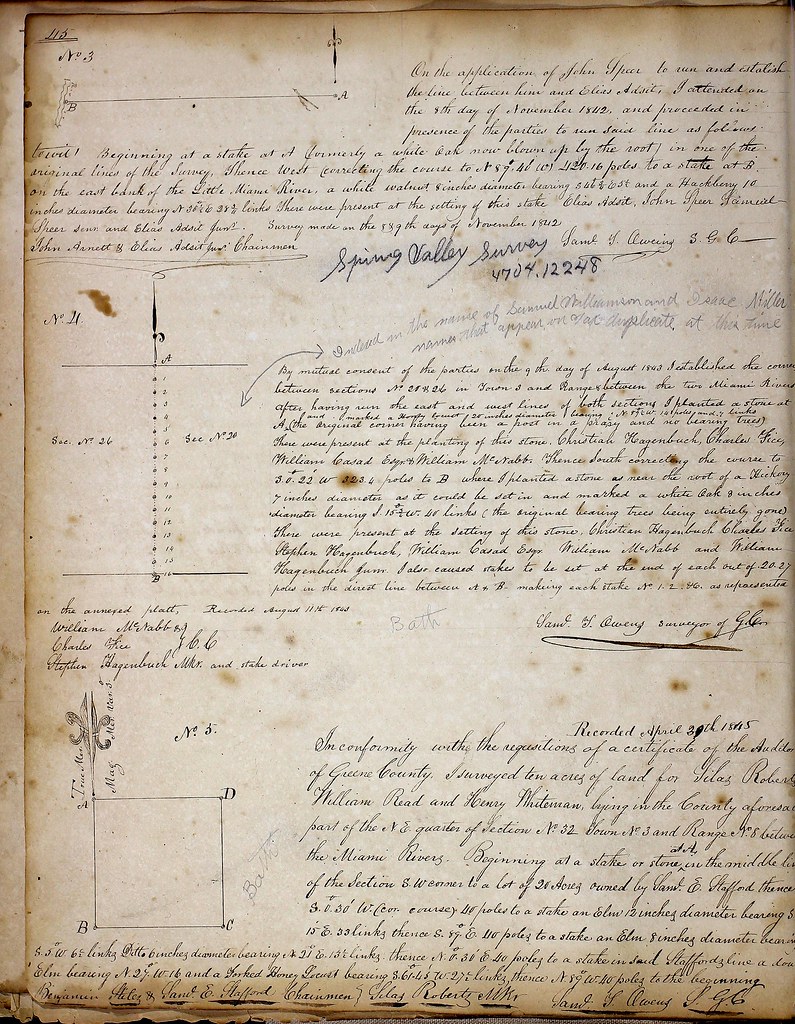 45
No 3
A
B
On the application of John Speer to run and establish
the line between him and Elias Adsit, I attended on
the 8th day of November 1842, and proceeded in
presence of the parties to run said line as follows
towit! Beginning at a stake at A (formerly a white Oak now blown up by the root) in one of the
original lines of the Survey, Thence West (correcting the course to N 89° 40' W) 420.16 poles to a stake at B.
on the east bank of the Little Miami River, a white walnut 8 inches diameter bearing and a Hackberry 10
inches diameter bearing links There were present at the setting of this stake Elias Adsit, John Speer Samuel
Speer senr and Elias Adsit Junr. Survey made on the 8 & 9th days of November 1842
John Arnett & Elias Adsit Junr Chainmen
Saml. T. Owens S. G C
Spring Valley Survey
4704.12248
No 4.
Indexed in the name of Samuel Williamson and Isaac Miller
names that appear on Oat duplicate at this time
A
1
2
3
4
5
6
7
8
9
10
11
12
13
14
15
16
B
Sec. No 26
Sec No 20
By mutual consent of the parties on the 9th day of August 1843 I established the corner
between sections No 20 & 26 in Town 3 and Range 8 between the two Miami Rivers
after having run the east and west lines of both sections I planted a stone at
and I marked a Honey Locust 20 inches diameter bearing N. W. 14 poles and 7 links
A (the original corner having been a post in a and no bearing trees)
There were present at the planting of this stone, Christian Hagenbuch, Charles Fice,
William Casad Esqr & William McNabb. Thence South correcting the course to
S. 0° 22' W 323.4 poles to B where I planted a stone as near the root of a Hickory
7 inches diameter as it could be set in and marked a white Oak 8 inches
diameter bearing S. 15½° W. 40 links (the original bearing trees being entirely gone)
There were present at the setting of this stone, Christian Hagenbuch Charles Fice
Stephen Hagenbuch, William Casad Esqr. William McNabb and William
Hagenbuch Junr. I also caused stakes to be set at the end of each out of 20.27
poles in the direct line between A & B making each stake No 1. 2. &c. as represented
on the annexed platt, Recorded August 11th 1843
William McNabb &
Charles Fice } C. C
Stephen Hagenbuch Mkr. and stake driver
Saml. T. Owens surveyor of G. Co.
Bath
No 5.
True Mer
Mag Mer Var. 5°
D
B
C
Bath
Recorded April 29th 1845
In conformity withe the requisitions of a certificate of the Auditor
of Greene County, I surveyed ten acres of land for Silas Roberts
William Read and Henry Whiteman, lying in the County aforesaid
part of the N E. quarter of Section No 32 Town No 3 and Range No 8 between
the Miami Rivers. Beginning at a stake or stone at A, in the middle line
of the Section S. W corner to a lot of 20 Acres owned by Saml. E. Stafford thence
S. 0° 30' W. (cor. course) 40 poles to a stake an Elm 12 inches diameter bearing S
15° E. 33 links thence S. 89° E. 40 poles to a stake. an Elm 8 inches diameter bearing
S. 5° W 6 links Ditto 6 inches diameter bearing N 21° E. 13 links thence N. 0° 30' E 40 poles to a stake in said Stafford's line a double
Elm bearing N 27 W. 16 and a forked Honey Locust bearing S. 61° 45' W 27 links, thence N 89° W. 40 poles to the beginning
Benjamin Stiles & Saml. E. Stafford Chainmen } Silas Roberts Mkr Saml. T. Owens S. G C.